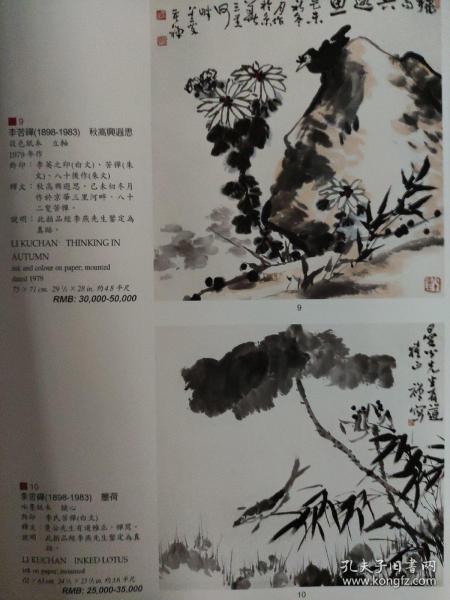 9
李苦禪(1898-1983) 秋高興遐思
設色紙本 立軸
1979年作
鈐印：李英之印(白文)、苦禪(朱
文)、八十後作(朱文)
釋文：秋高興遐思。己未初冬月
作於京華三里河畔，八十
二叟苦禪。
說明：此拍品經李燕先生鑒定為
真跡。
LI KUCHAN THINKING IN
AUTUMN
ink and colour on paper; mounted
dated 1979
75 × 71 cm. 29 ½ × 28 in. 約4.8平尺
RMB: 30,000-50,000
9
曼公先生有道
雅正 禪寫
10
李苦禪(1898-1983) 墨荷
水墨紙本 鏡心
鈐印：李氏苦禪(白文)
釋文：曼公先生有道雅正，禪寫。
說明：此拍品經李燕先生鑒定為真
跡。
LI KUCHAN INKED LOTUS
ink on paper; mounted
RMB: 25,000-35,000
10
孔夫子旧书网
www.kongfz.com